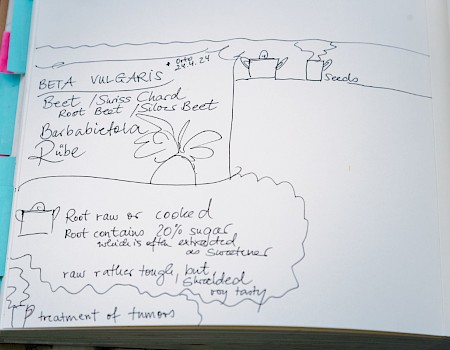 24.4.24
BETA VULGARIS
Beet / Swiss Chard
Root Beet / Silver Beet
Barbabietola
Rübe
seeds
Root raw or cooked
Root contains 20% sugar
which is often extracted
as sweetener
raw rather tough, but
shredded
very tasty
treatment of tumors